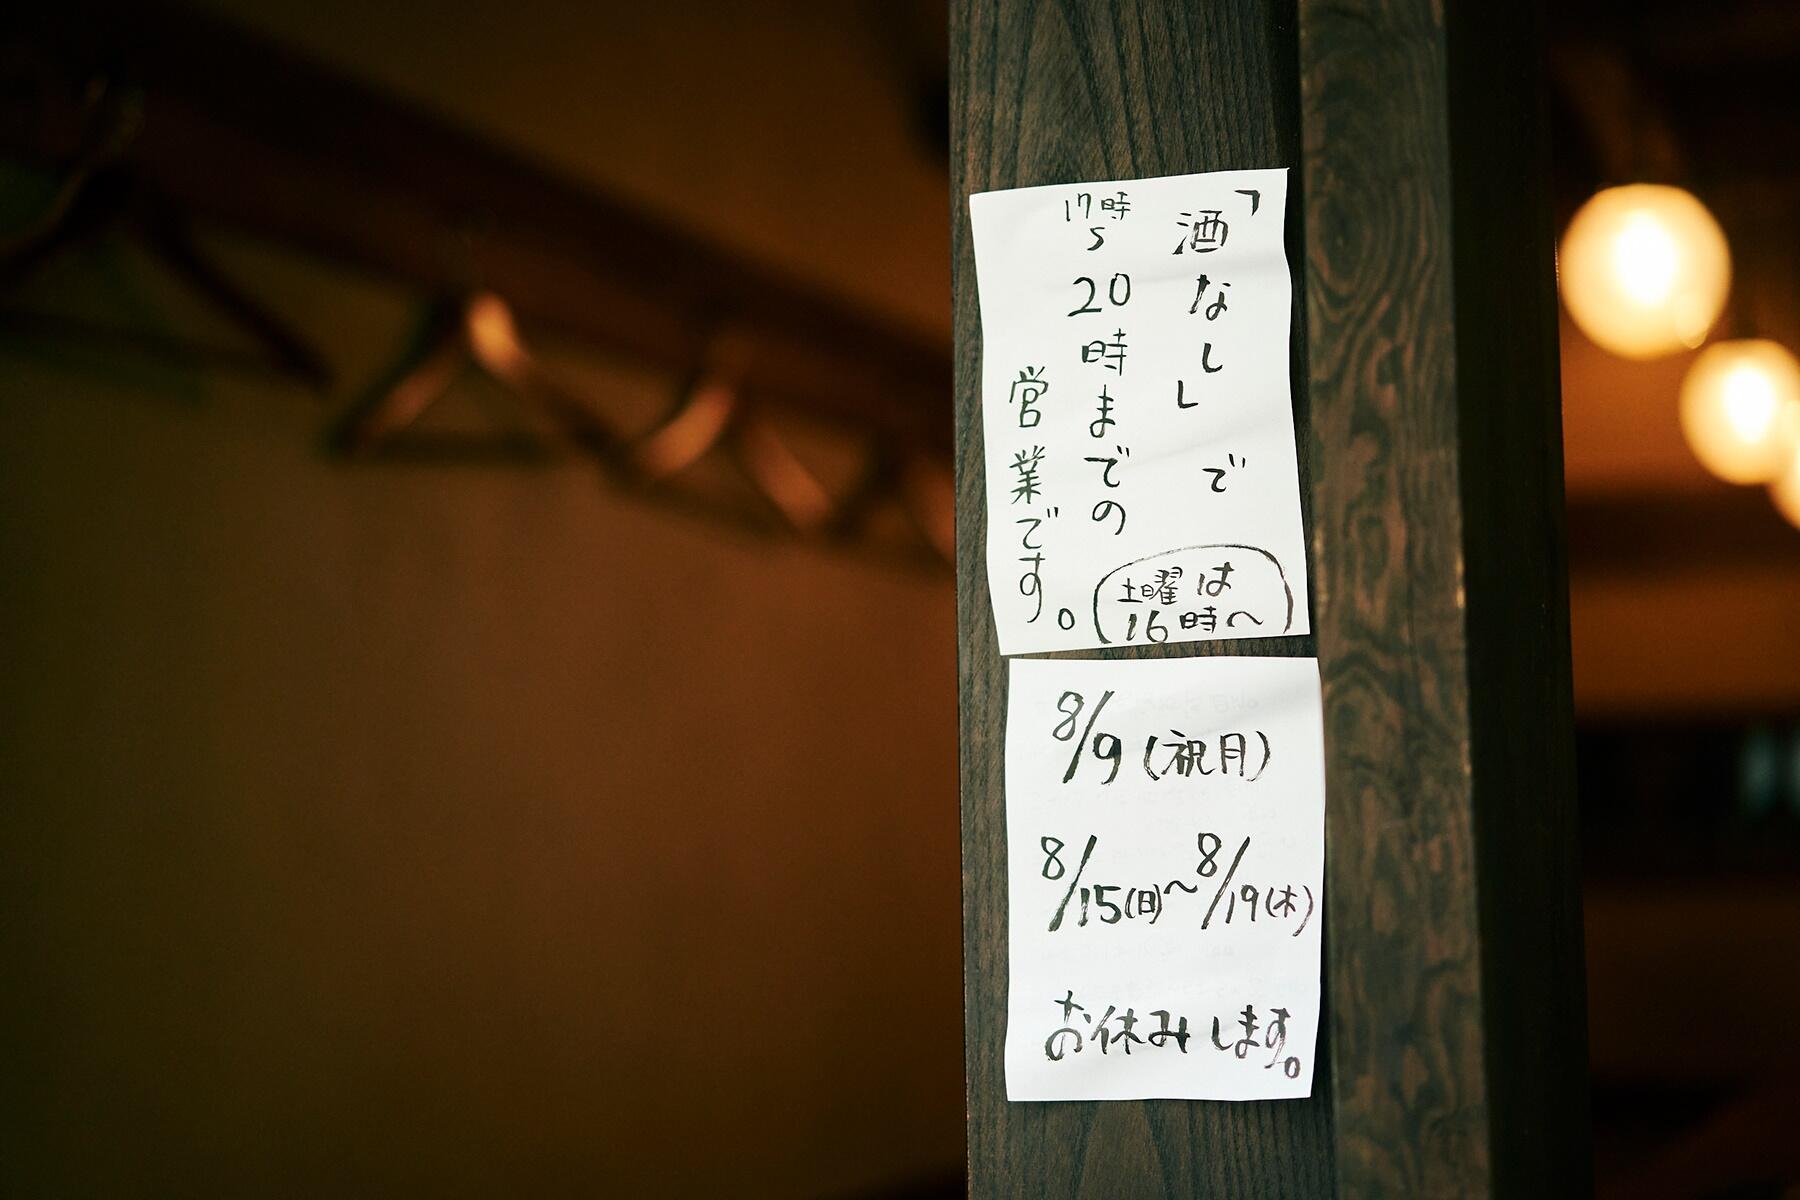 「酒なし」で
17時〜20時までの
営業です。
(土曜は
16時〜)
8/9(祝月)
8/15(日)〜8/19(木)
お休みします。